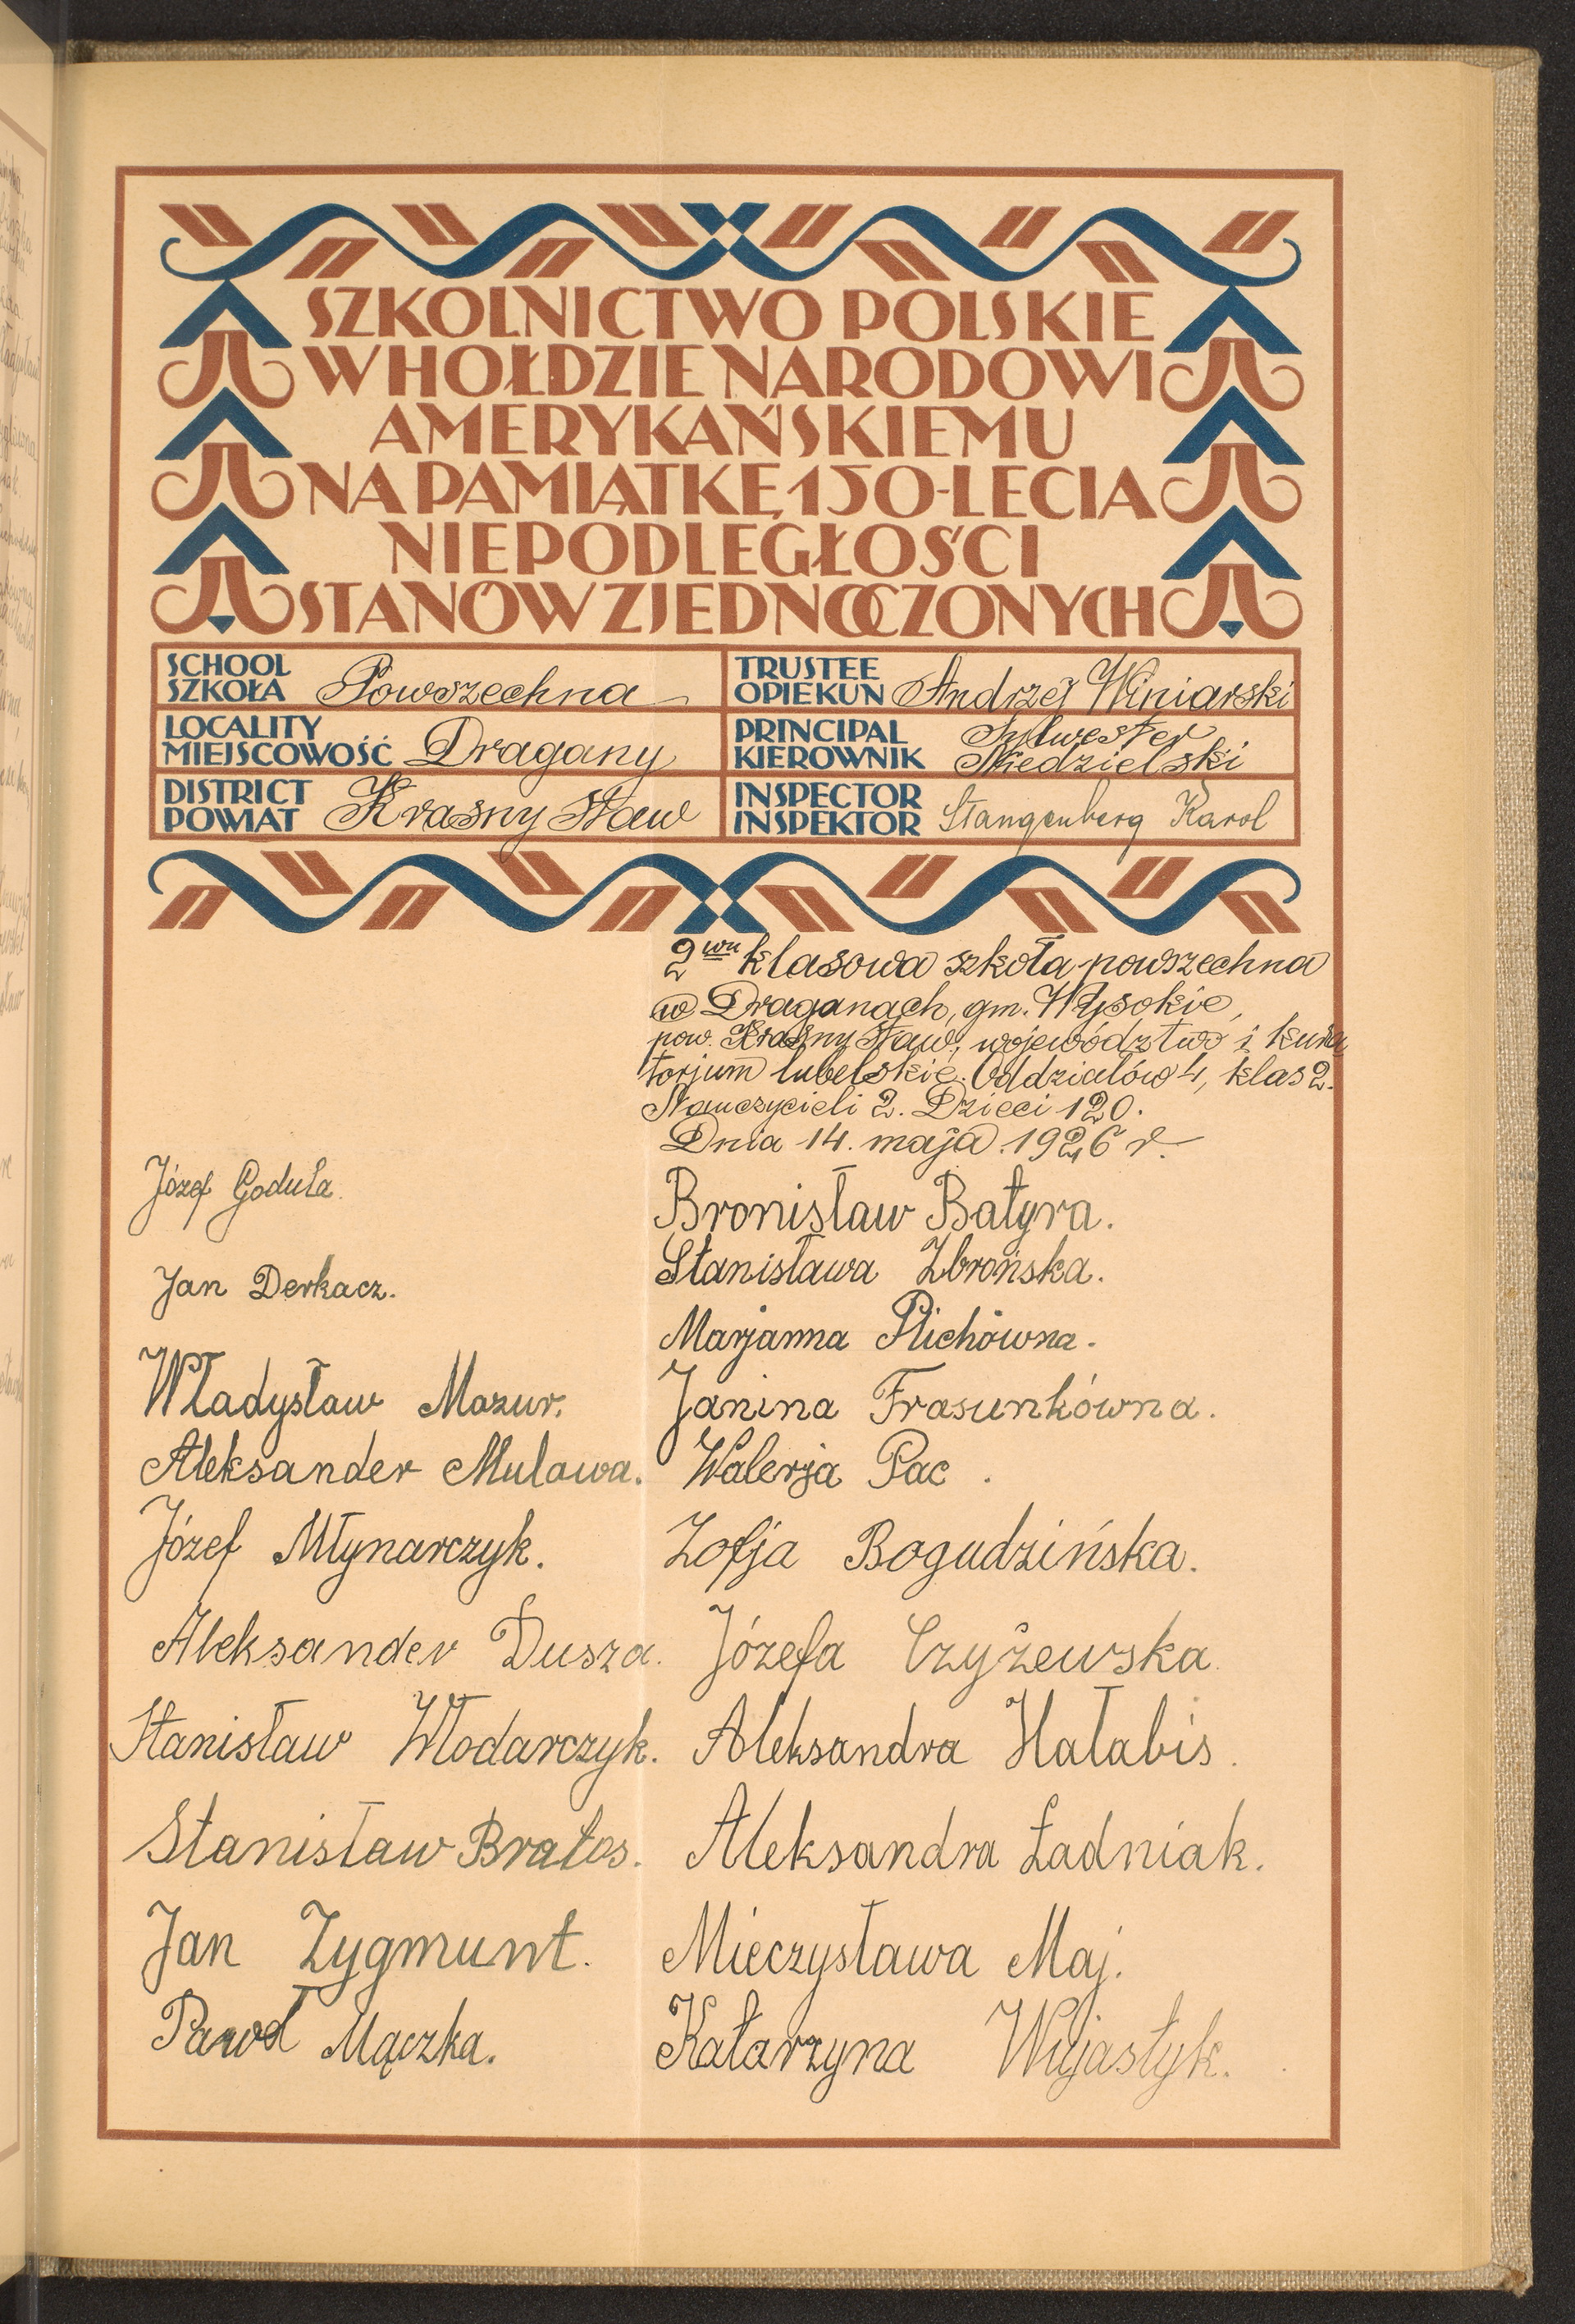 SZKOLNICTWO POLSKIE
W HOŁDZIE NARODOWI
AMERYKAŃSKIEMU
NA PAMIĄTKĘ 150-LECIA
NIEPODLEGŁOŚCI
STANÓW ZJEDNOCZONYCH
SCHOOL
SZKOŁA Powszechna
TRUSTEE
OPIEKUN Andrzej Winiarski
LOCALITY
MIEJSCOWOŚĆ Dragany
PRINCIPAL Sylwester
KIEROWNIK Niedzielski
DISTRICT
POWIAT Krasny Staw
INSPECTOR
INSPEKTOR Stangenberg Karol
2wu klasowa szkoła powszechna
w Draganach, gm. Wysokie,
pow. Krasny Staw, województwo i kura
torjum lubelskie. Oddziałów 4, klas 2.
Nauczycieli 2. Dzieci 120.
Dnia 14. maja. 1926 r.
Józef Goduła.
Jan Derkacz.
Władysław Mazur.
Aleksander Mulawa.
Józef Młynarczyk.
Aleksander Dusza.
Stanisław Włodarczyk.
Stanisław Bratos.
Jan Zygmunt.
Paweł Mączka.
Bronisław Batyra.
Stanisława Zbrońska.
Marjanna Plichówna.
Janina Frasunkówna.
Walerja Pac.
Zofja Bogudzińska.
Józefa Czyżewska.
Aleksandra Hałabis.
Aleksandra Ładniak.
Mieczysława Maj.
Katarzyna Wujastyk.